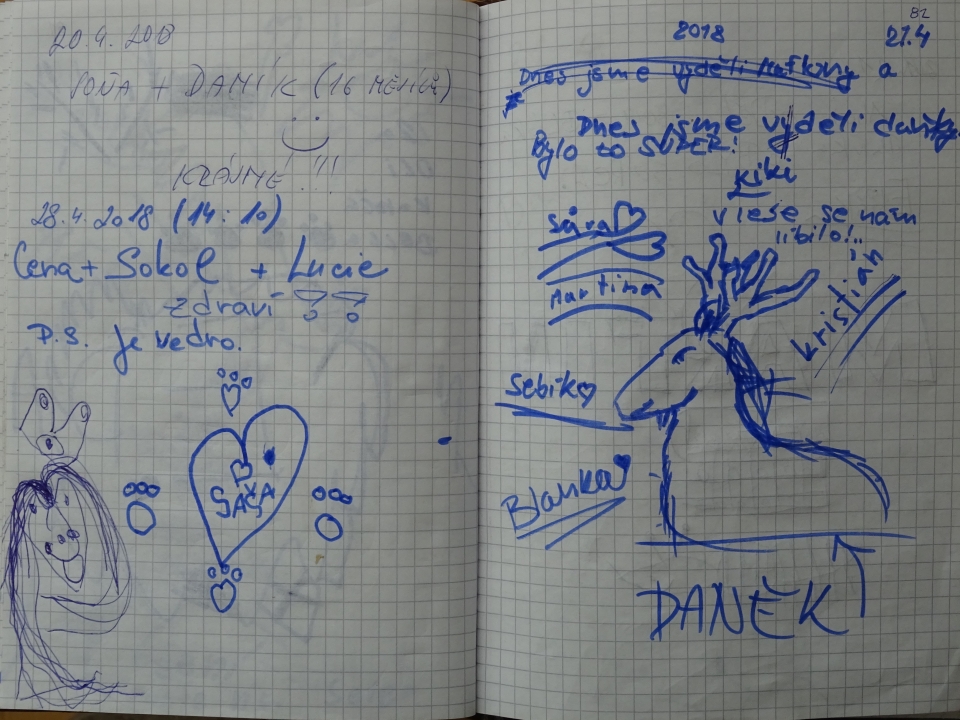 20.4.2018
SOŇA + DANÍK (16 MĚSÍCŮ)
KRÁSNÉ !!!
28.4.2018 (14:10)
Cena + Sokol + Lucie
zdraví
P.S. Je vedro.
SAŠA
82
2018 21.4
Dnes jsme vyděli a
Dnes jsme vyděli daňky.
Bylo to SUPER!
kiki
V lese se nám
líbilo!..
Sára
Martina
kristián
Sebik
Blanka
DANĚK